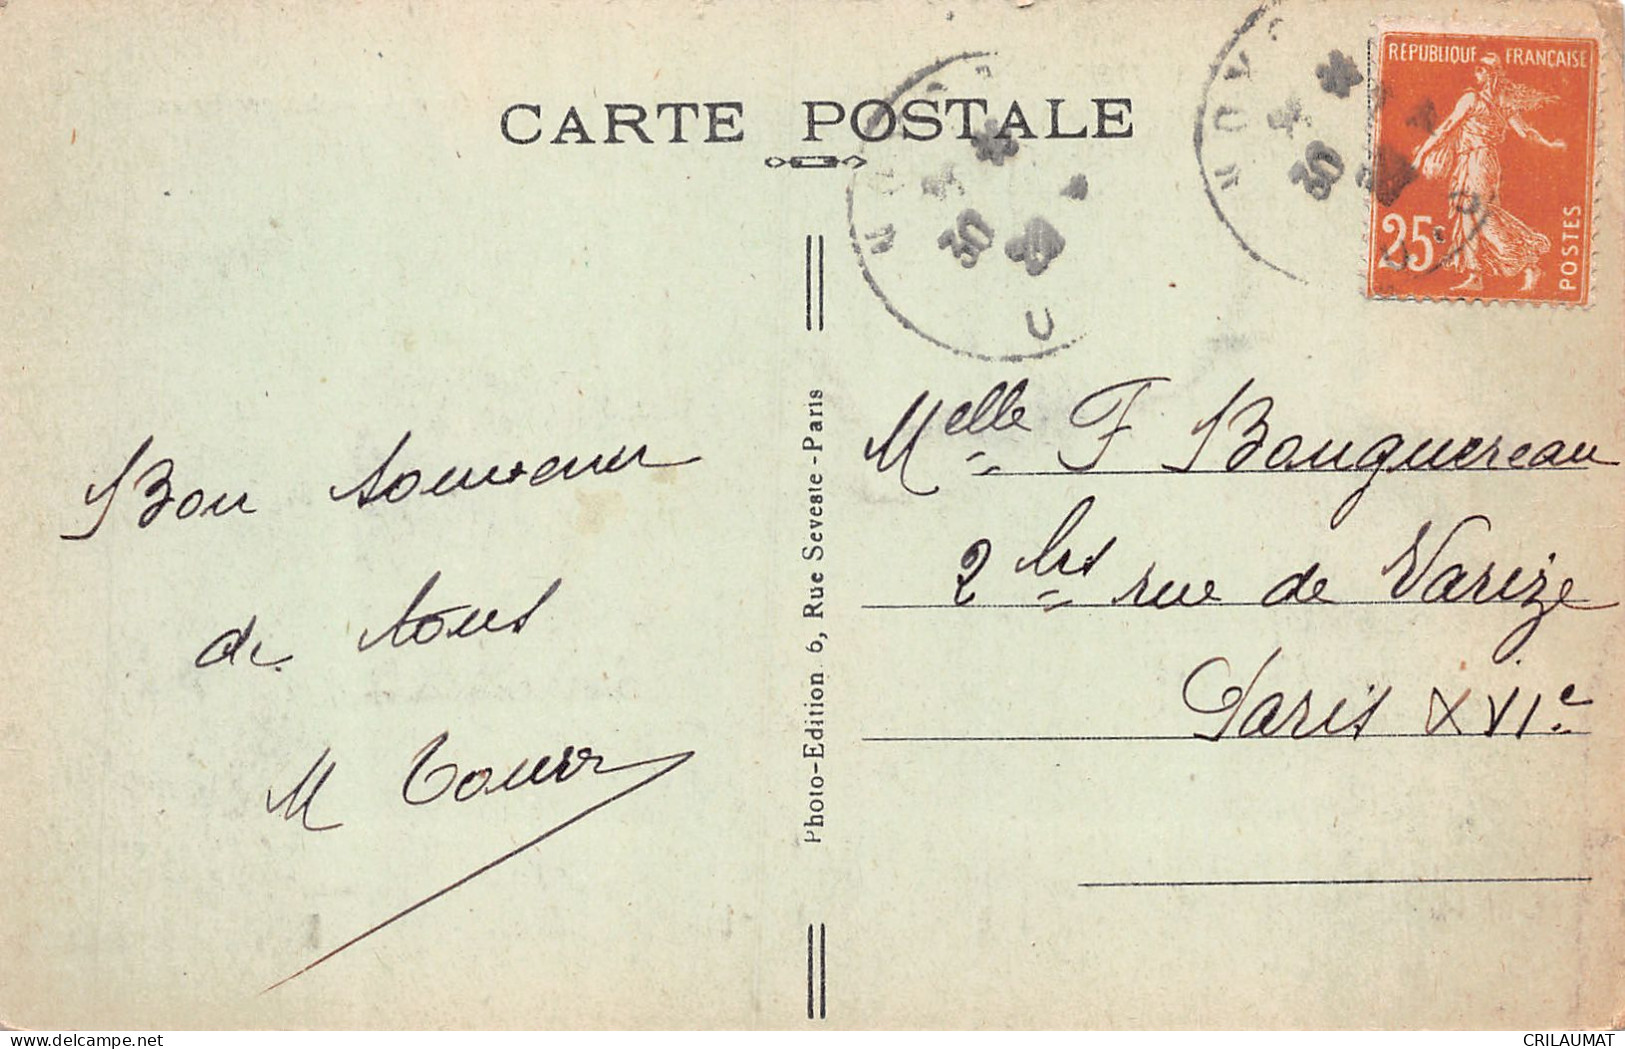 CARTE POSTALE
RÉPUBLIQUE FRANÇAISE
25c
POSTES
30
Bon souvenir
de tous
M
Photo-Edition 6, Rue Seveste - Paris
Melle F Bouguereau
2 bis rue de Varize
Paris XVIe
delcampe.net
CRILAUMAT